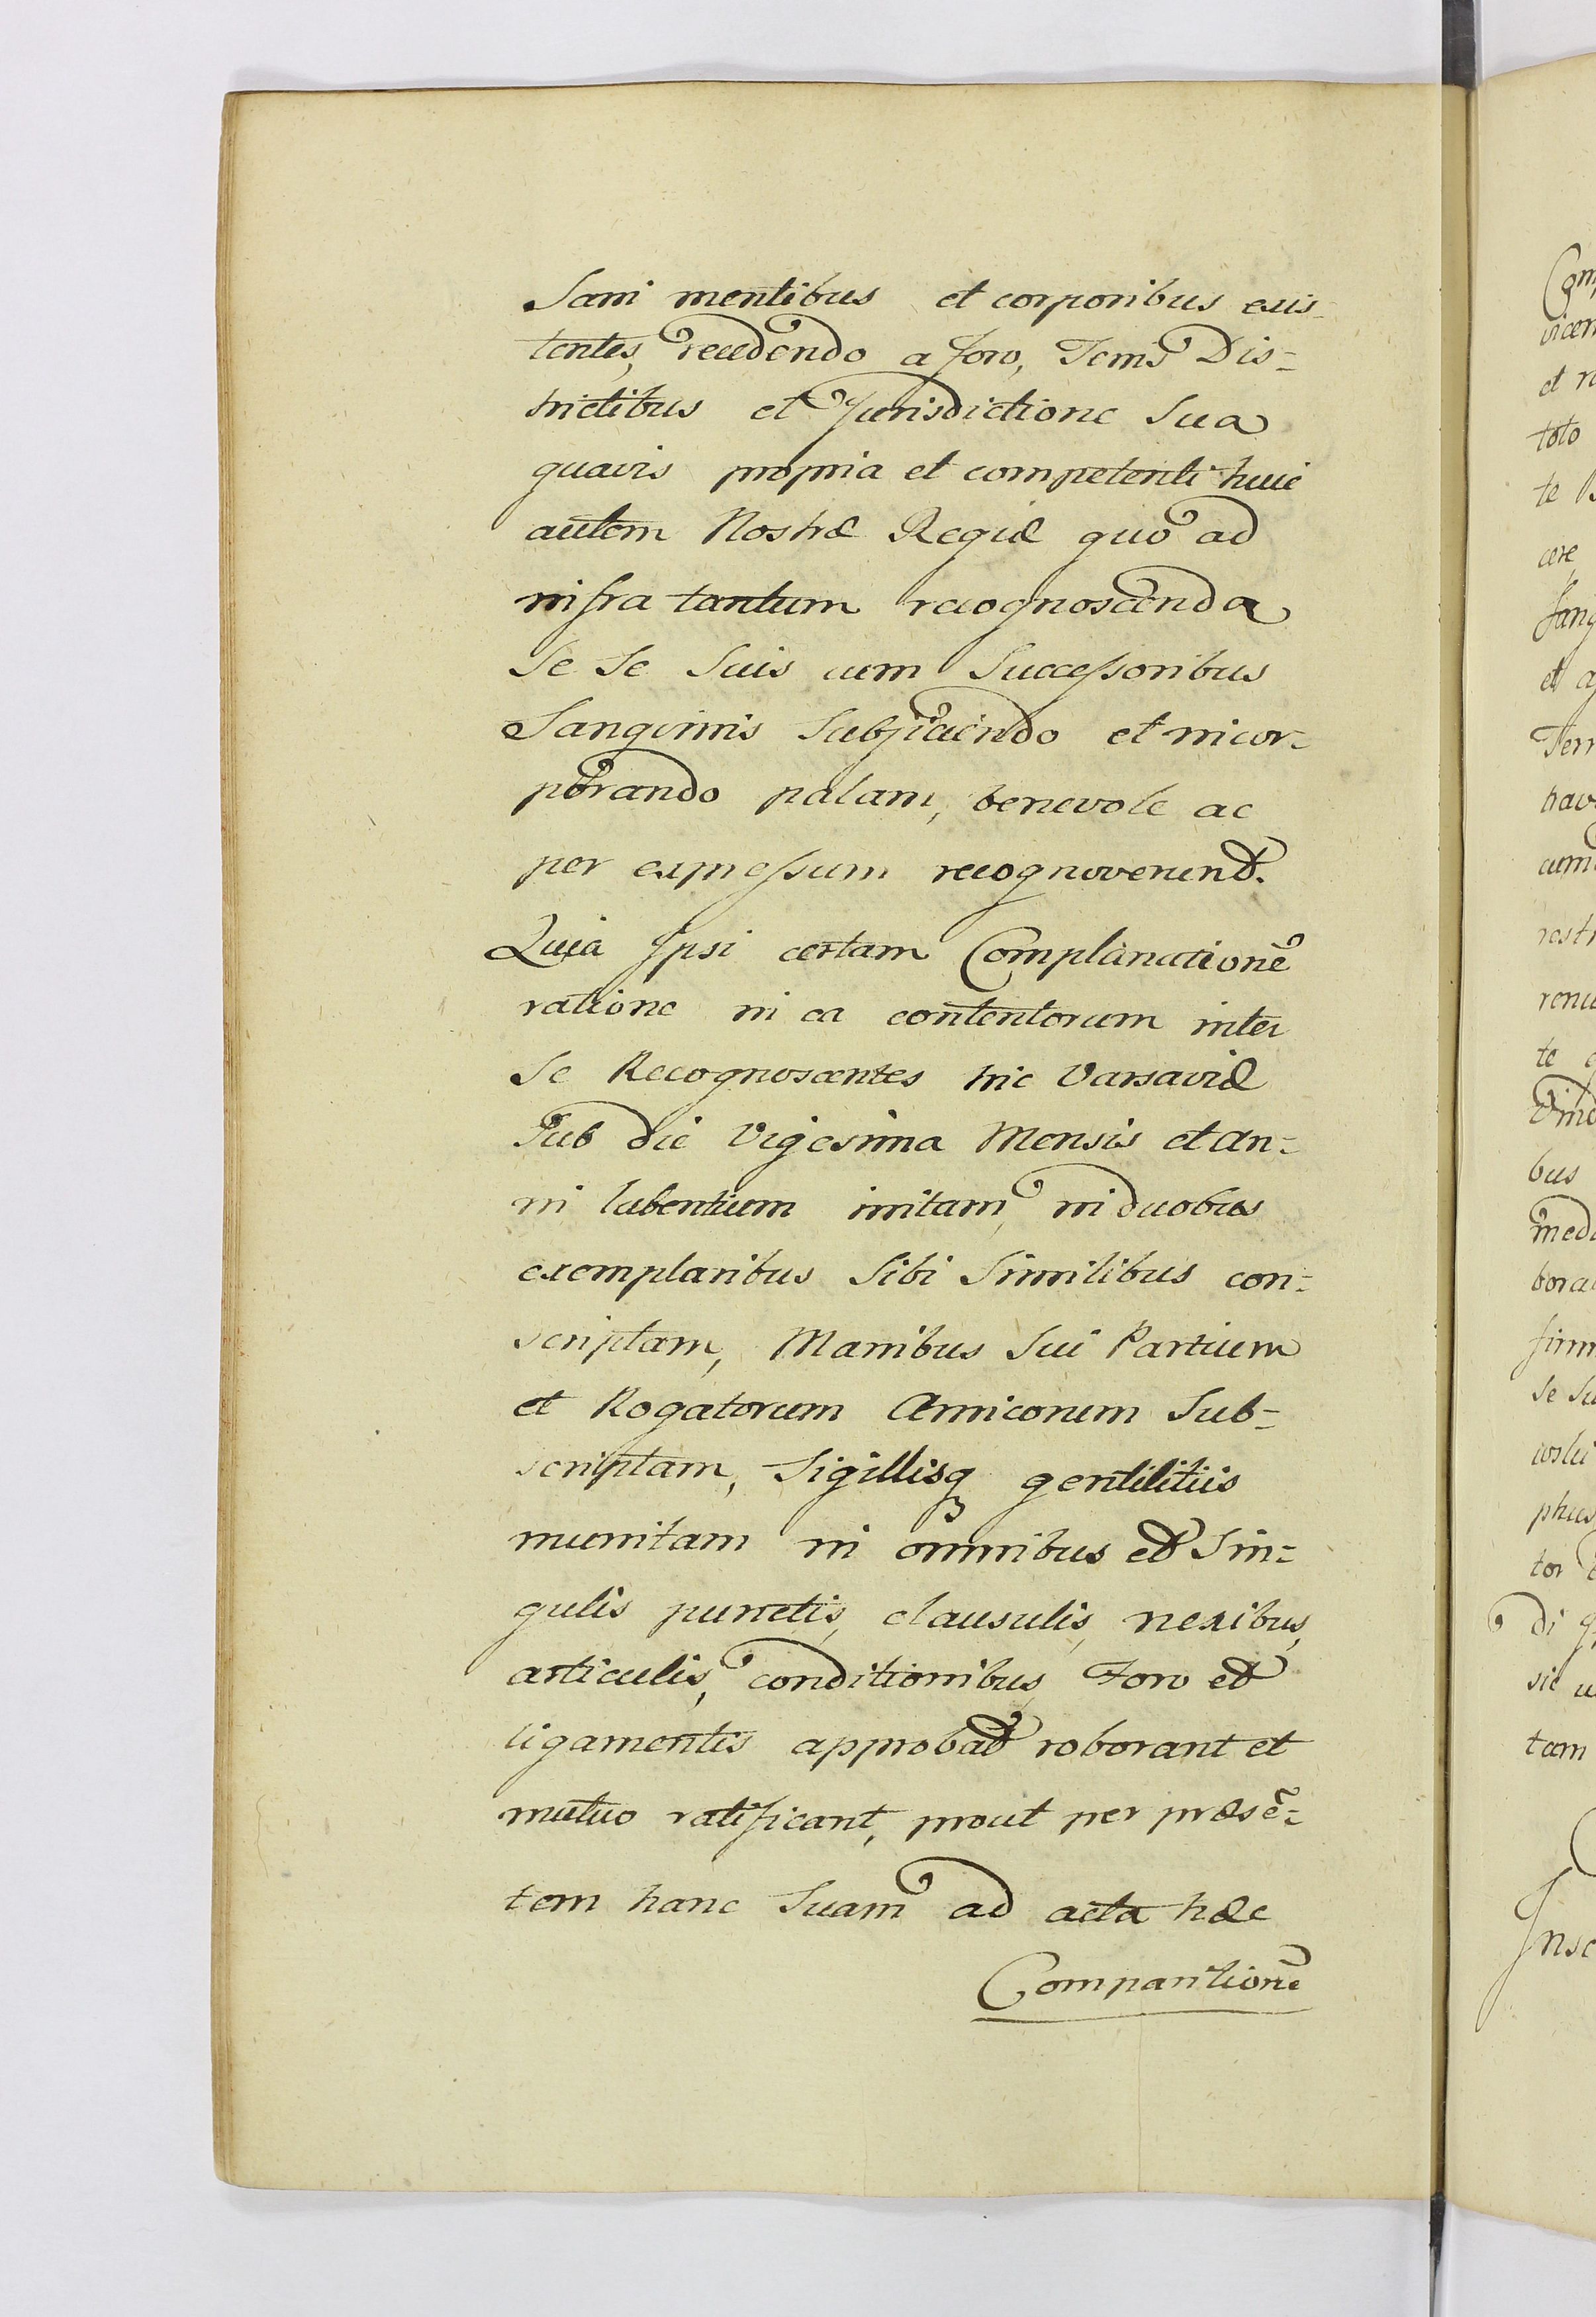 Sani mentibus et corporibus exis-
tentes, recedendo a foro, Terris Dis=
trictibus et Jurisdictione Sua
quavis propria et competenti huic
autem Nostræ Regiæ quo ad
infra tantum recognoscenda
Se Se Suis cum Successoribus
Sanguinis Subjiciendo et incor=
porando palam, benevole ac
per expressum recognoverunt.
Quia Ipsi certam Complanationē
ratione in ea contentorum inter
Se Recognoscentes hic Varsaviæ
Sub die Vigesima Mensis et An=
ni labentium initam, in duobus
exemplaribus Sibi Similibus con=
scriptam, Manibus Sui Partium
et Rogatorum Amicorum Sub=
scriptam, Sigillisq gentilitiis
munitam in omnibus et Sin=
gulis punctis, clausulis, nexibus,
articulis, conditionibus, Foro et
ligamentis approbat roborant et
mutuo ratificant, prout per præsē=
tem hanc Suam ad acta hæc
Comparitionē
Com
vicem
et r
toto
te
cere
Sang
et a
Terr
hav
cum
restr
renu
te
Vind
bus
med
bora
firm
Se Su
coslu
phus
tor
di q
sic u
tam
Insc